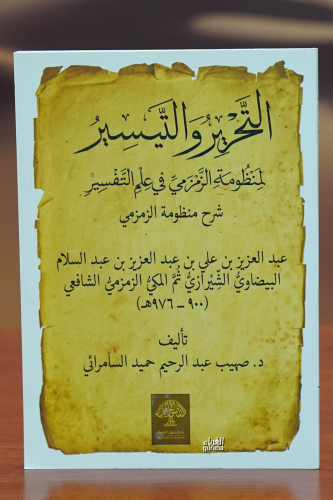 التَّحْرِيرُ وَالتَّيْسِيرُ
لِمَنْظُومَةِ الزَّمْزَمِيِّ فِي عِلْمِ التَّفْسِيرِ
شرح منظومة الزمزمي
عبد العزيز بن علي بن عبد العزيز بن عبد السلام
البيضاويُّ الشِّيرازيُّ ثُمَّ المكيُّ الزمزميُّ الشافعي
(٩٠٠ – ٩٧٦هـ)
تأليف
د. صهيب عبد الرحيم حميد السامرائي
الغرباء
guraba